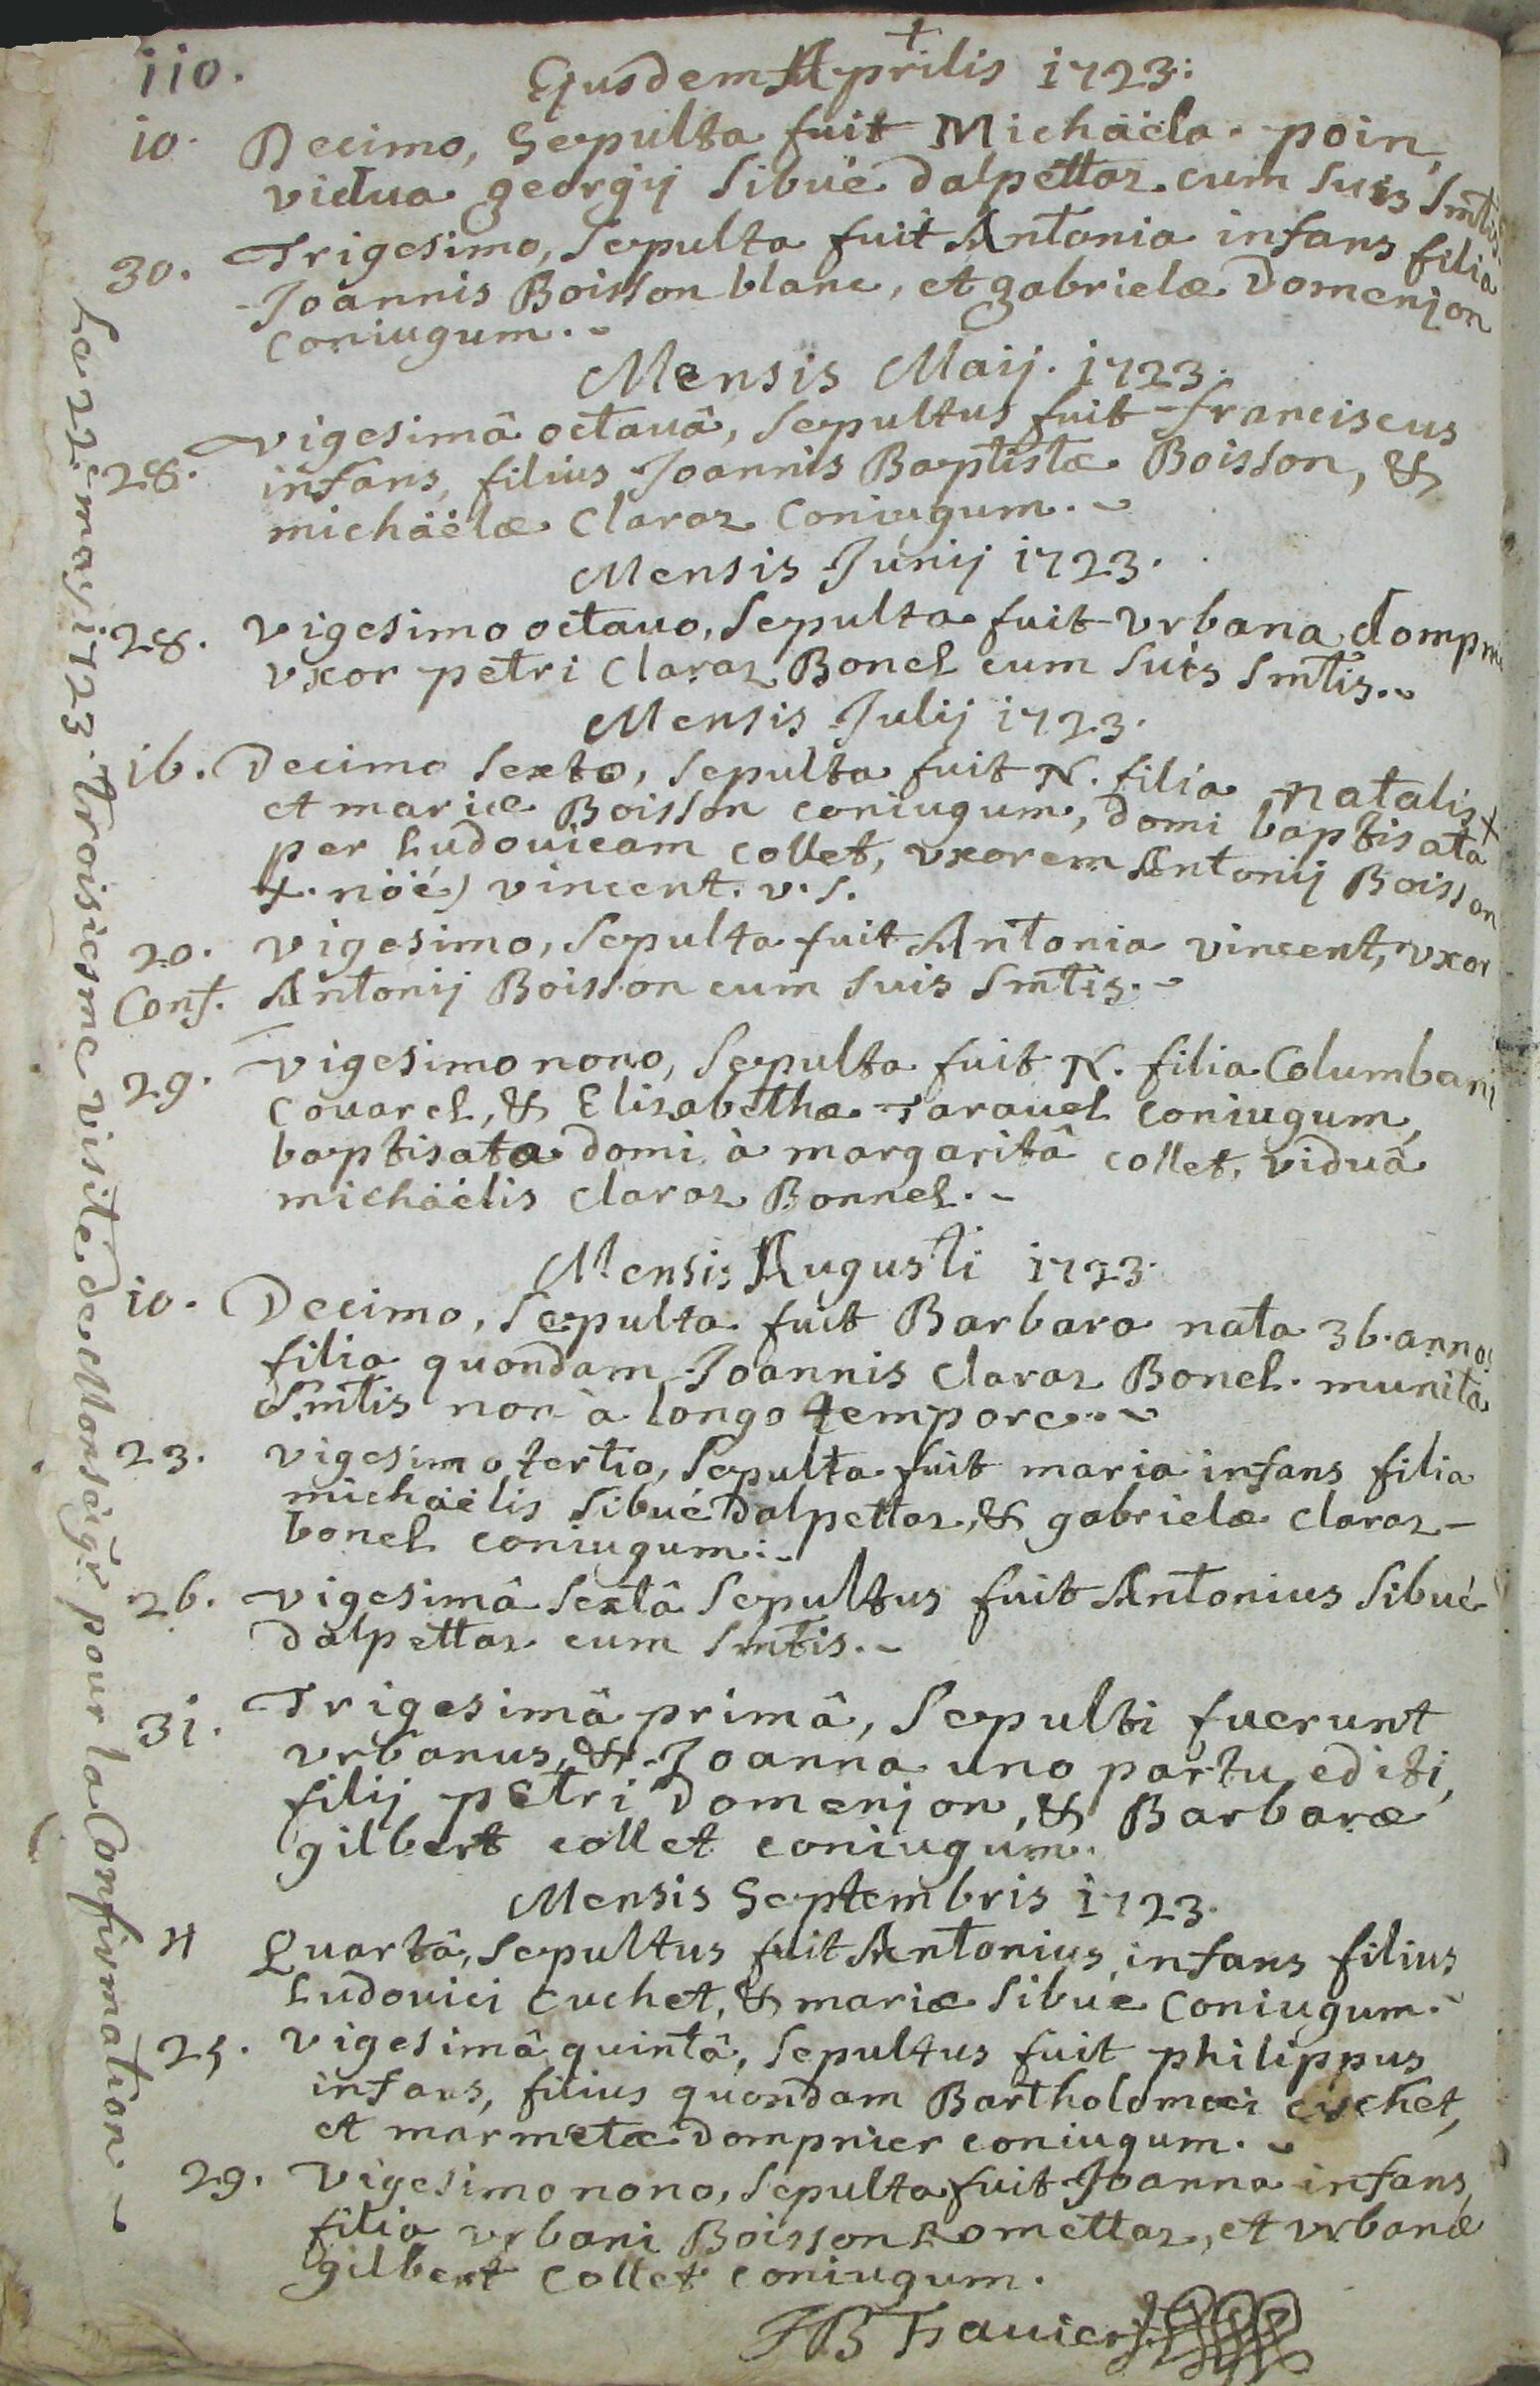 110.
Ejusdem Aprilis 1723.
10. Decimo, Sepulta fuit Michäela poin,
vidua georgij Sibué dalpettaz cum suis Smtis.
30. Trigesimo, Sepulta fuit Antonia infans filia
Joannis Boisson blanc, et gabrielæ Domenjon
coniugum.
Mensis Maij. 1723.
28. vigesimâ octauâ, Sepultus fuit franciscus
infans, filius Joannis Baptistæ Boisson, &
michäelæ Claraz Coniugum.
Mensis Junij 1723.
28. vigesimo octauo, Sepulta fuit vrbana dompnie
vxor petri Claraz Bonel cum suis Smtis.
Mensis Julij 1723.
16. Decimo Sexto, Sepulta fuit N. filia natalis +
et mariæ Boisson coniugum, domi baptisata
per Ludouicam collet, vxorem Antonij Boisson
+. nöé) vincent. v. s.
20. vigesimo, Sepulta fuit Antonia vincent, vxor
Conf. Antonij Boisson cum suis Smtis.
29. vigesimo nono, Sepulta fuit N. filia Columbani
Couarel, & Elisabethæ Tarauel coniugum,
baptisata domi à margaritâ collet, viduâ
michäelis claraz Bonnel.
Mensis Augusti 1723.
10. Decimo, Sepulta fuit Barbara nata 36. annos
filia quondam Joannis Claraz Bonel. munita
Smtis non à longo tempore.
23. vigesimo tertio, Sepulta fuit maria infans filia
michäelis Sibué dalpettaz, & gabrielæ claraz
bonel coniugum.
26. vigesimâ Sextâ Sepultus fuit Antonius Sibué
dalpettaz cum Smtis.
31. Trigesimâ primâ, Sepulti fuerunt
vrbanus, & Joanna uno partu editi,
filij petri Domenjon, & Barbaræ
gilbert collet coniugum.
Mensis Septembris 1723.
4 Quartâ, Sepultus fuit Antonius, infans filius
Ludouici Cuchet, & mariæ Sibue Coniugum.
25. vigesimâ quintâ, Sepultus fuit philippus
infans, filius quondam Bartholomæi cuchet,
et marmetæ dompnier coniugum.
29. Vigesimo nono, Sepulta fuit Joanna infans,
filia vrbani Boisson Romettaz, et vrbanæ
gilbert Collet coniugum.
JB Trauier
Le 22e. may 1723. troisiesme visite de Monseigr. pour la Confirmation